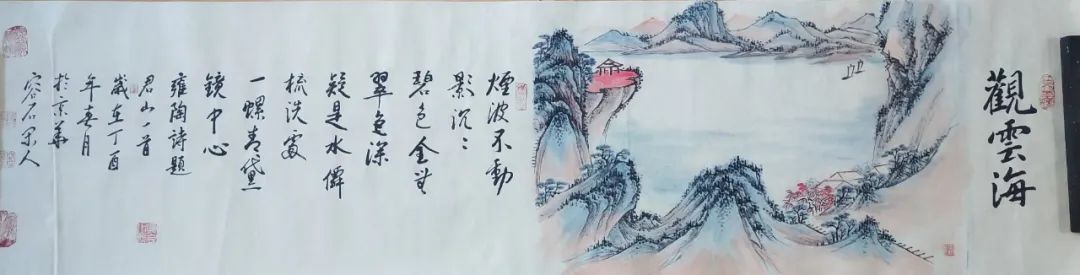 觀雲海
煙波不動
影沉〻
碧色全無
翠色深
疑是水僊
梳洗處
一螺青黛
鏡中心
雍陶詩題
君山一首
歲在丁酉
年春月
於京華
容石人